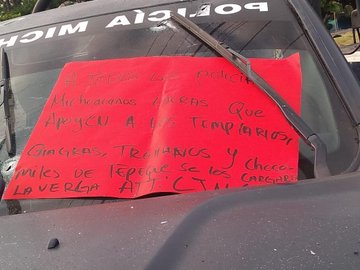 POLICÍA MICH
A TODOS LOS POLICIAS
Michoacanos LACRAS QUE
APOYEN A LOS TEMPLARIOS,
GIAGRAS, TROYANOS Y choco
miles DE TEPEQUE SE LOS CARGARA
LA VERGA ATT. CJNG